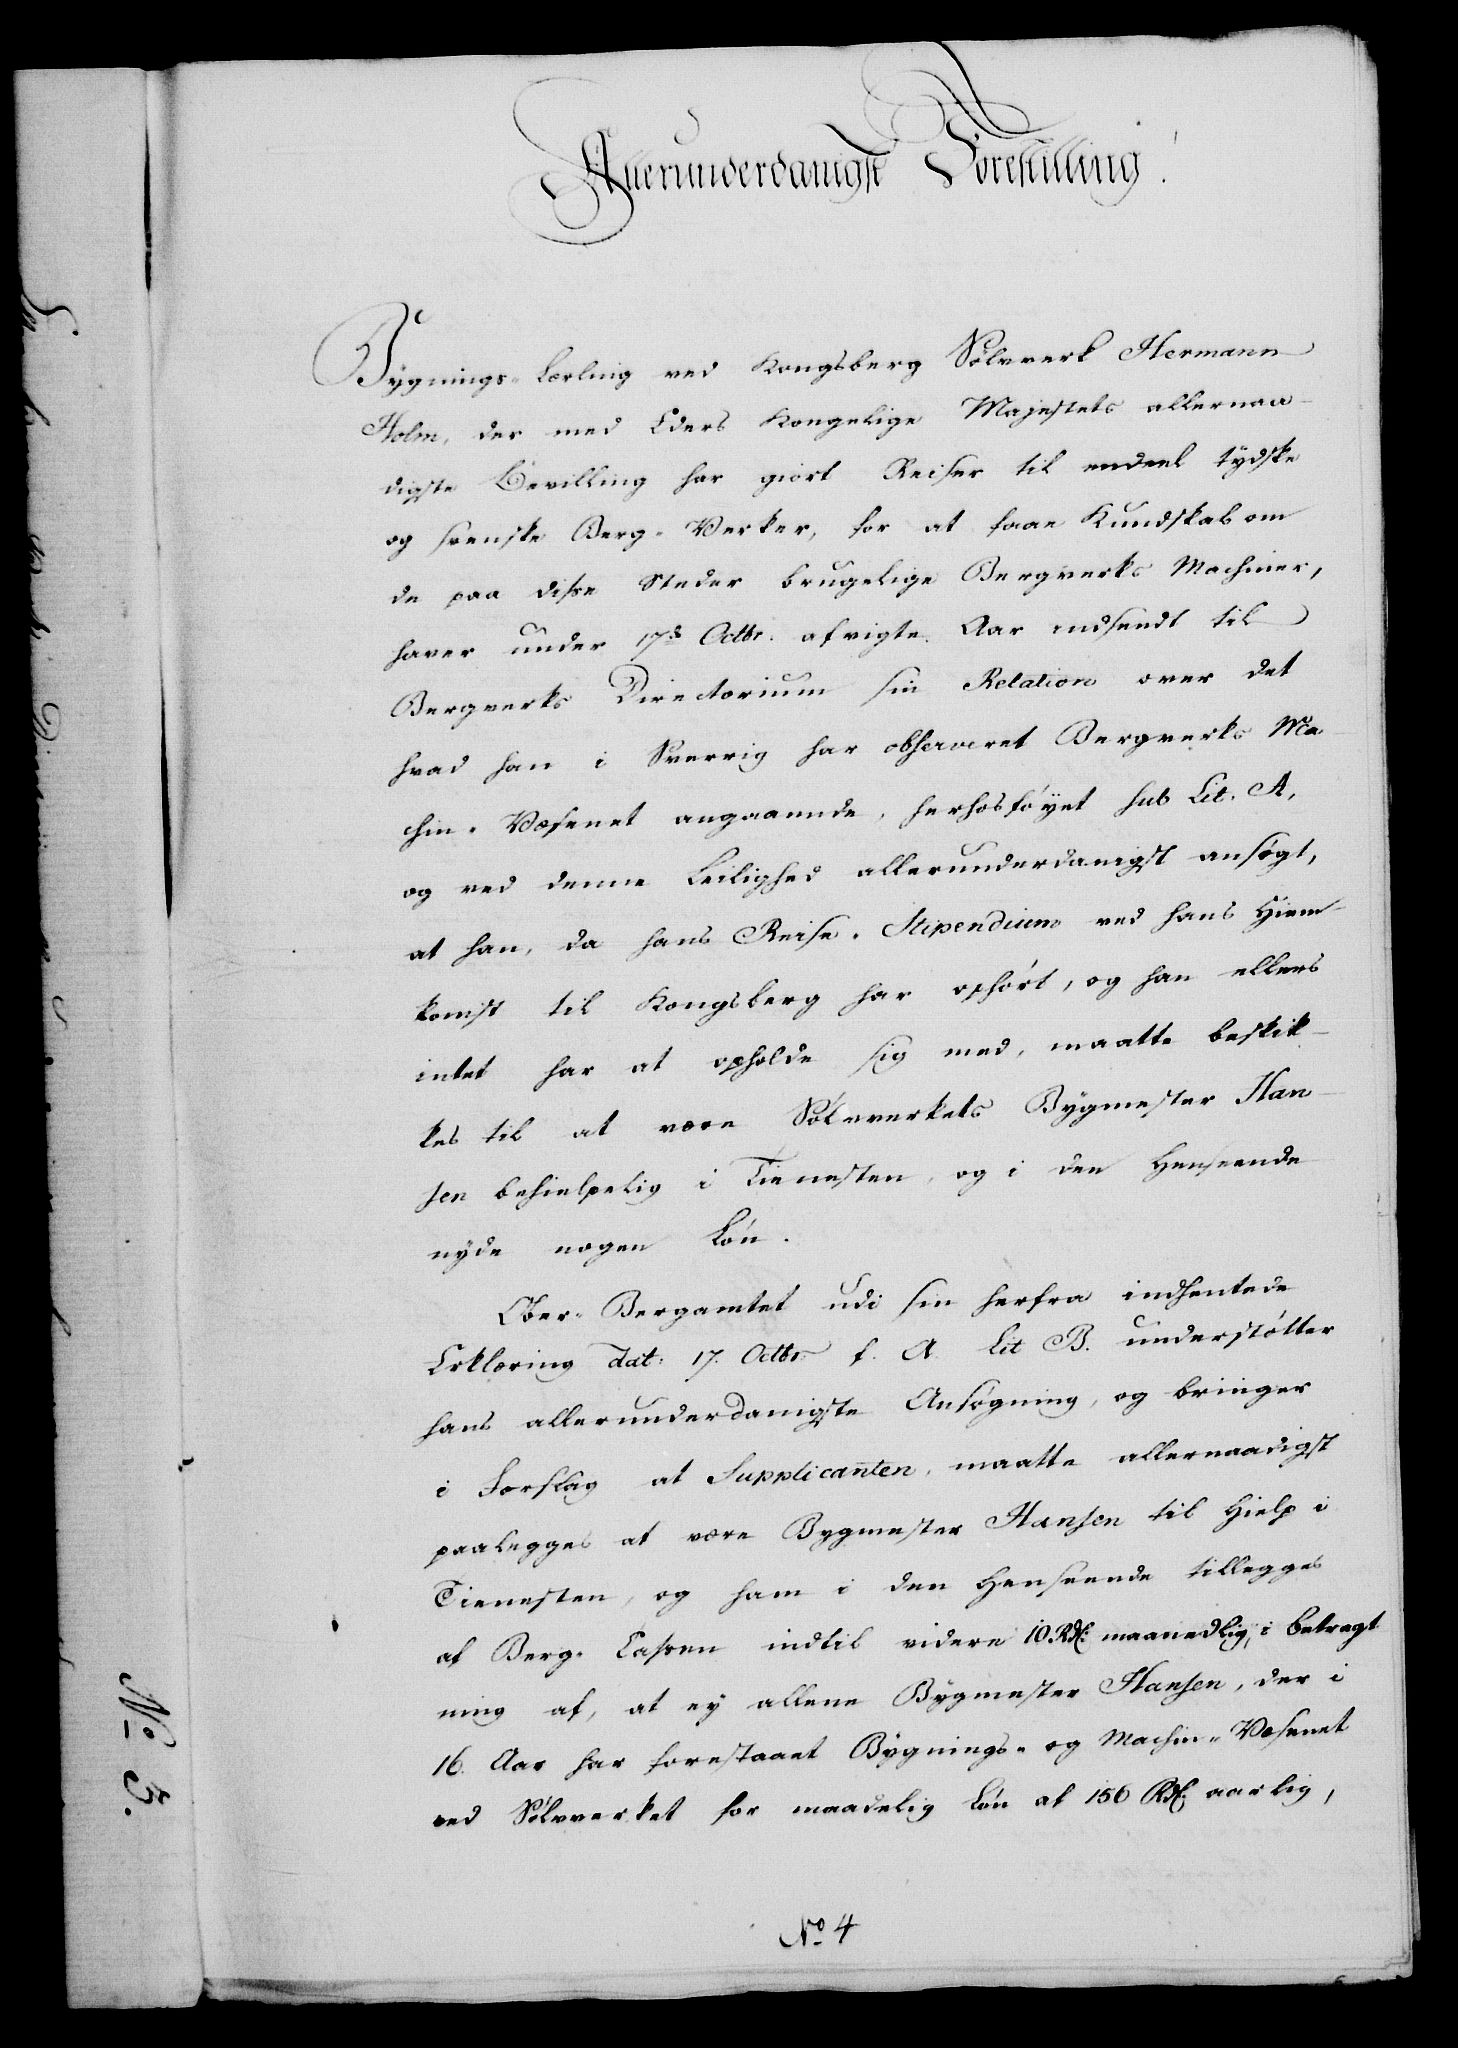 Allerunderdanigst Forestilling!
Bygnings-Lærling ved Kongsberg Sølvverk Hermann
Holm, der med Eders Kongelige Majestets allernaa-
digste Bevilling har giort Reiser til endeel tydske
og svenske Berg-Verker, for at faae Kundskab om
de paa disse Steder brugelige Bergverks Machiner,
haver under 17d Octbr. afvigte Aar indsendt til
Bergverks Directorium sin Relation over det
hvad han i Sverrig har observeret Bergverks Ma-
chin-Væsenet angaaende, herhosføyet sub Lit. A,
og ved denne Leilighed allerunderdanigst ansøgt,
at han, da hans Reise-Stipendium ved hans Hiem-
komst til Kongsberg har ophørt, og han ellers
intet har at opholde sig med, maatte beskik-
kes til at være Sølvverkets Bygmester Han-
sen behielpelig i Tienesten, og i den Henseende
nyde nogen Løn.
Ober-Bergamtet udi sin herfra indhentede
Erklæring dat: 17. Octbr f. A. Lit B. understøtter
hans allerunderdanigste Ansøgning, og bringer
i Forslag at Supplicanten, maatte allernaadigst
paalegges at være Bygmester Hansen til Hielp i
Tienesten, og ham i den Henseende tillegges
af Berg-Cassen indtil videre 10 Rdl: maanedlig, i Betragt
ning af, at ey allene Bygmester Hansen, der i
16. Aar har forestaaet Bygnings- og Machin-Væsenet
ved Sølvverket for maadelig Løn af 156 Rdl: aarlig,
No 4
No 5.